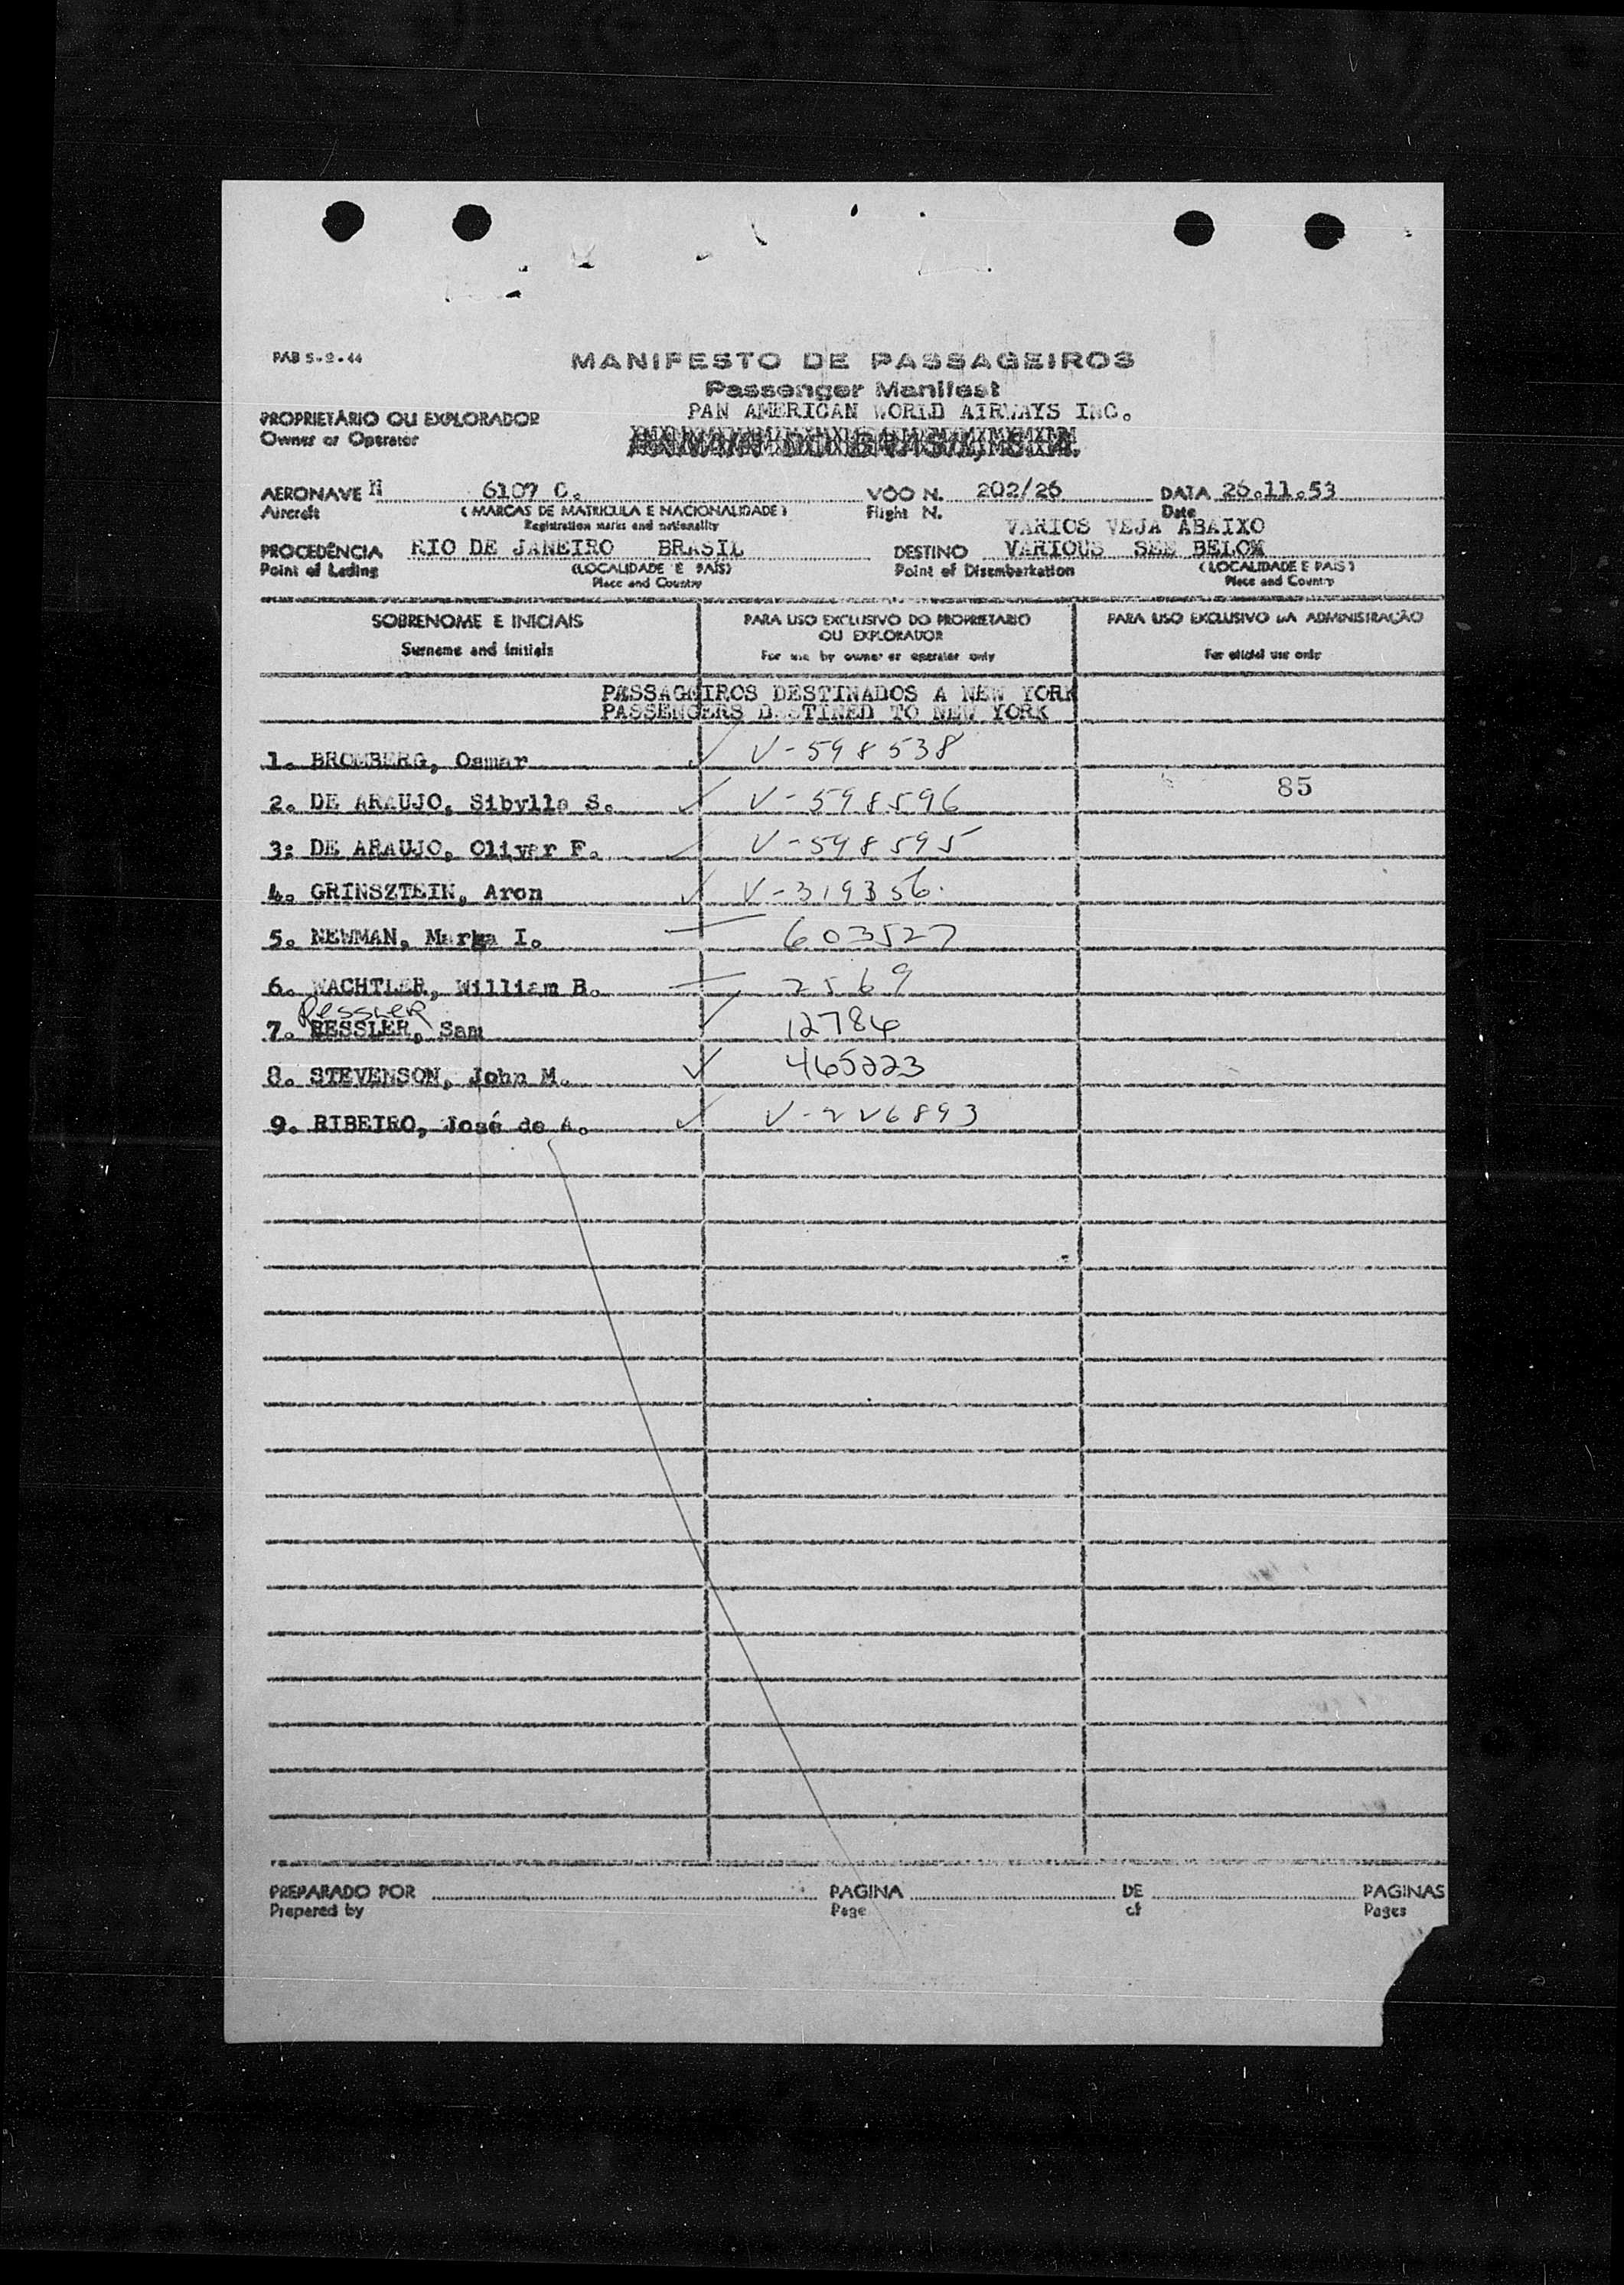 PAB 5-2-44
MANIFESTO DE PASSAGEIROS
Passenger Manifest
PAN AMERICAN WORLD AIRWAYS INC.
PROPRIETÁRIO OU EXPLORADOR
Owner or Operator
AERONAVE N 6107 C. VÔO N. 202/26 DATA 26.11.53
Aircraft (MARCAS DE MATRICULA E NACIONALIDADE) Flight N. Date
Registration marks and nationality
VARIOS VEJA ABAIXO
PROCEDÊNCIA RIO DE JANEIRO BRASIL DESTINO VARIOUS SEE BELOW
Point of Lading (LOCALIDADE E PAÍS) Point of Disembarkation (LOCALIDADE E PAÍS)
Place and Country Place and Country
SOBRENOME E INICIAIS PARA USO EXCLUSIVO DO PROPRIETARIO PARA USO EXCLUSIVO DA ADMINISTRAÇÃO
OU EXPLORADOR
Surname and initials For use by owner or operator only For official use only
PASSAGEIROS DESTINADOS A NEW YORK
PASSENGERS DESTINED TO NEW YORK
1. BROMBERG, Osmar ✓ V-598538
2. DE ARAUJO, Sibylla S. ✓ V-598596 85
3: DE ARAUJO, Oliver F. ✓ V-598595
4. GRINSZTEIN, Aron ✓ V-319356.
5. NEWMAN, Marga I. 603527
6. WACHTLER, William B. 2569
Ressler
7. RESSLER, Sam ✓ 12784
8. STEVENSON, John M. ✓ 465223
9. RIBEIRO, José de A. ✓ V-226893
PREPARADO POR PAGINA DE PAGINAS
Prepared by Page of Pages